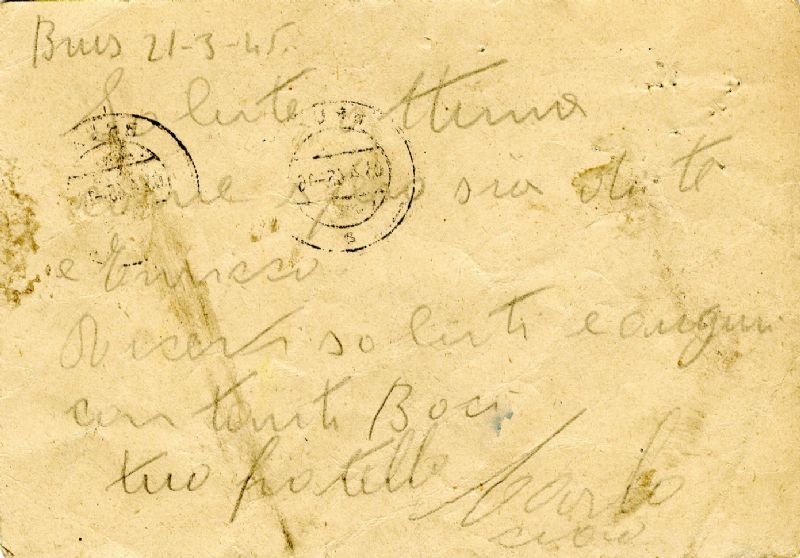 Brux 21-3-45.
Salute ottima
come spero sia di te
e Enrico.
Ricevi saluti e auguri
con tanti Baci
tuo fratello Carlo
ciao